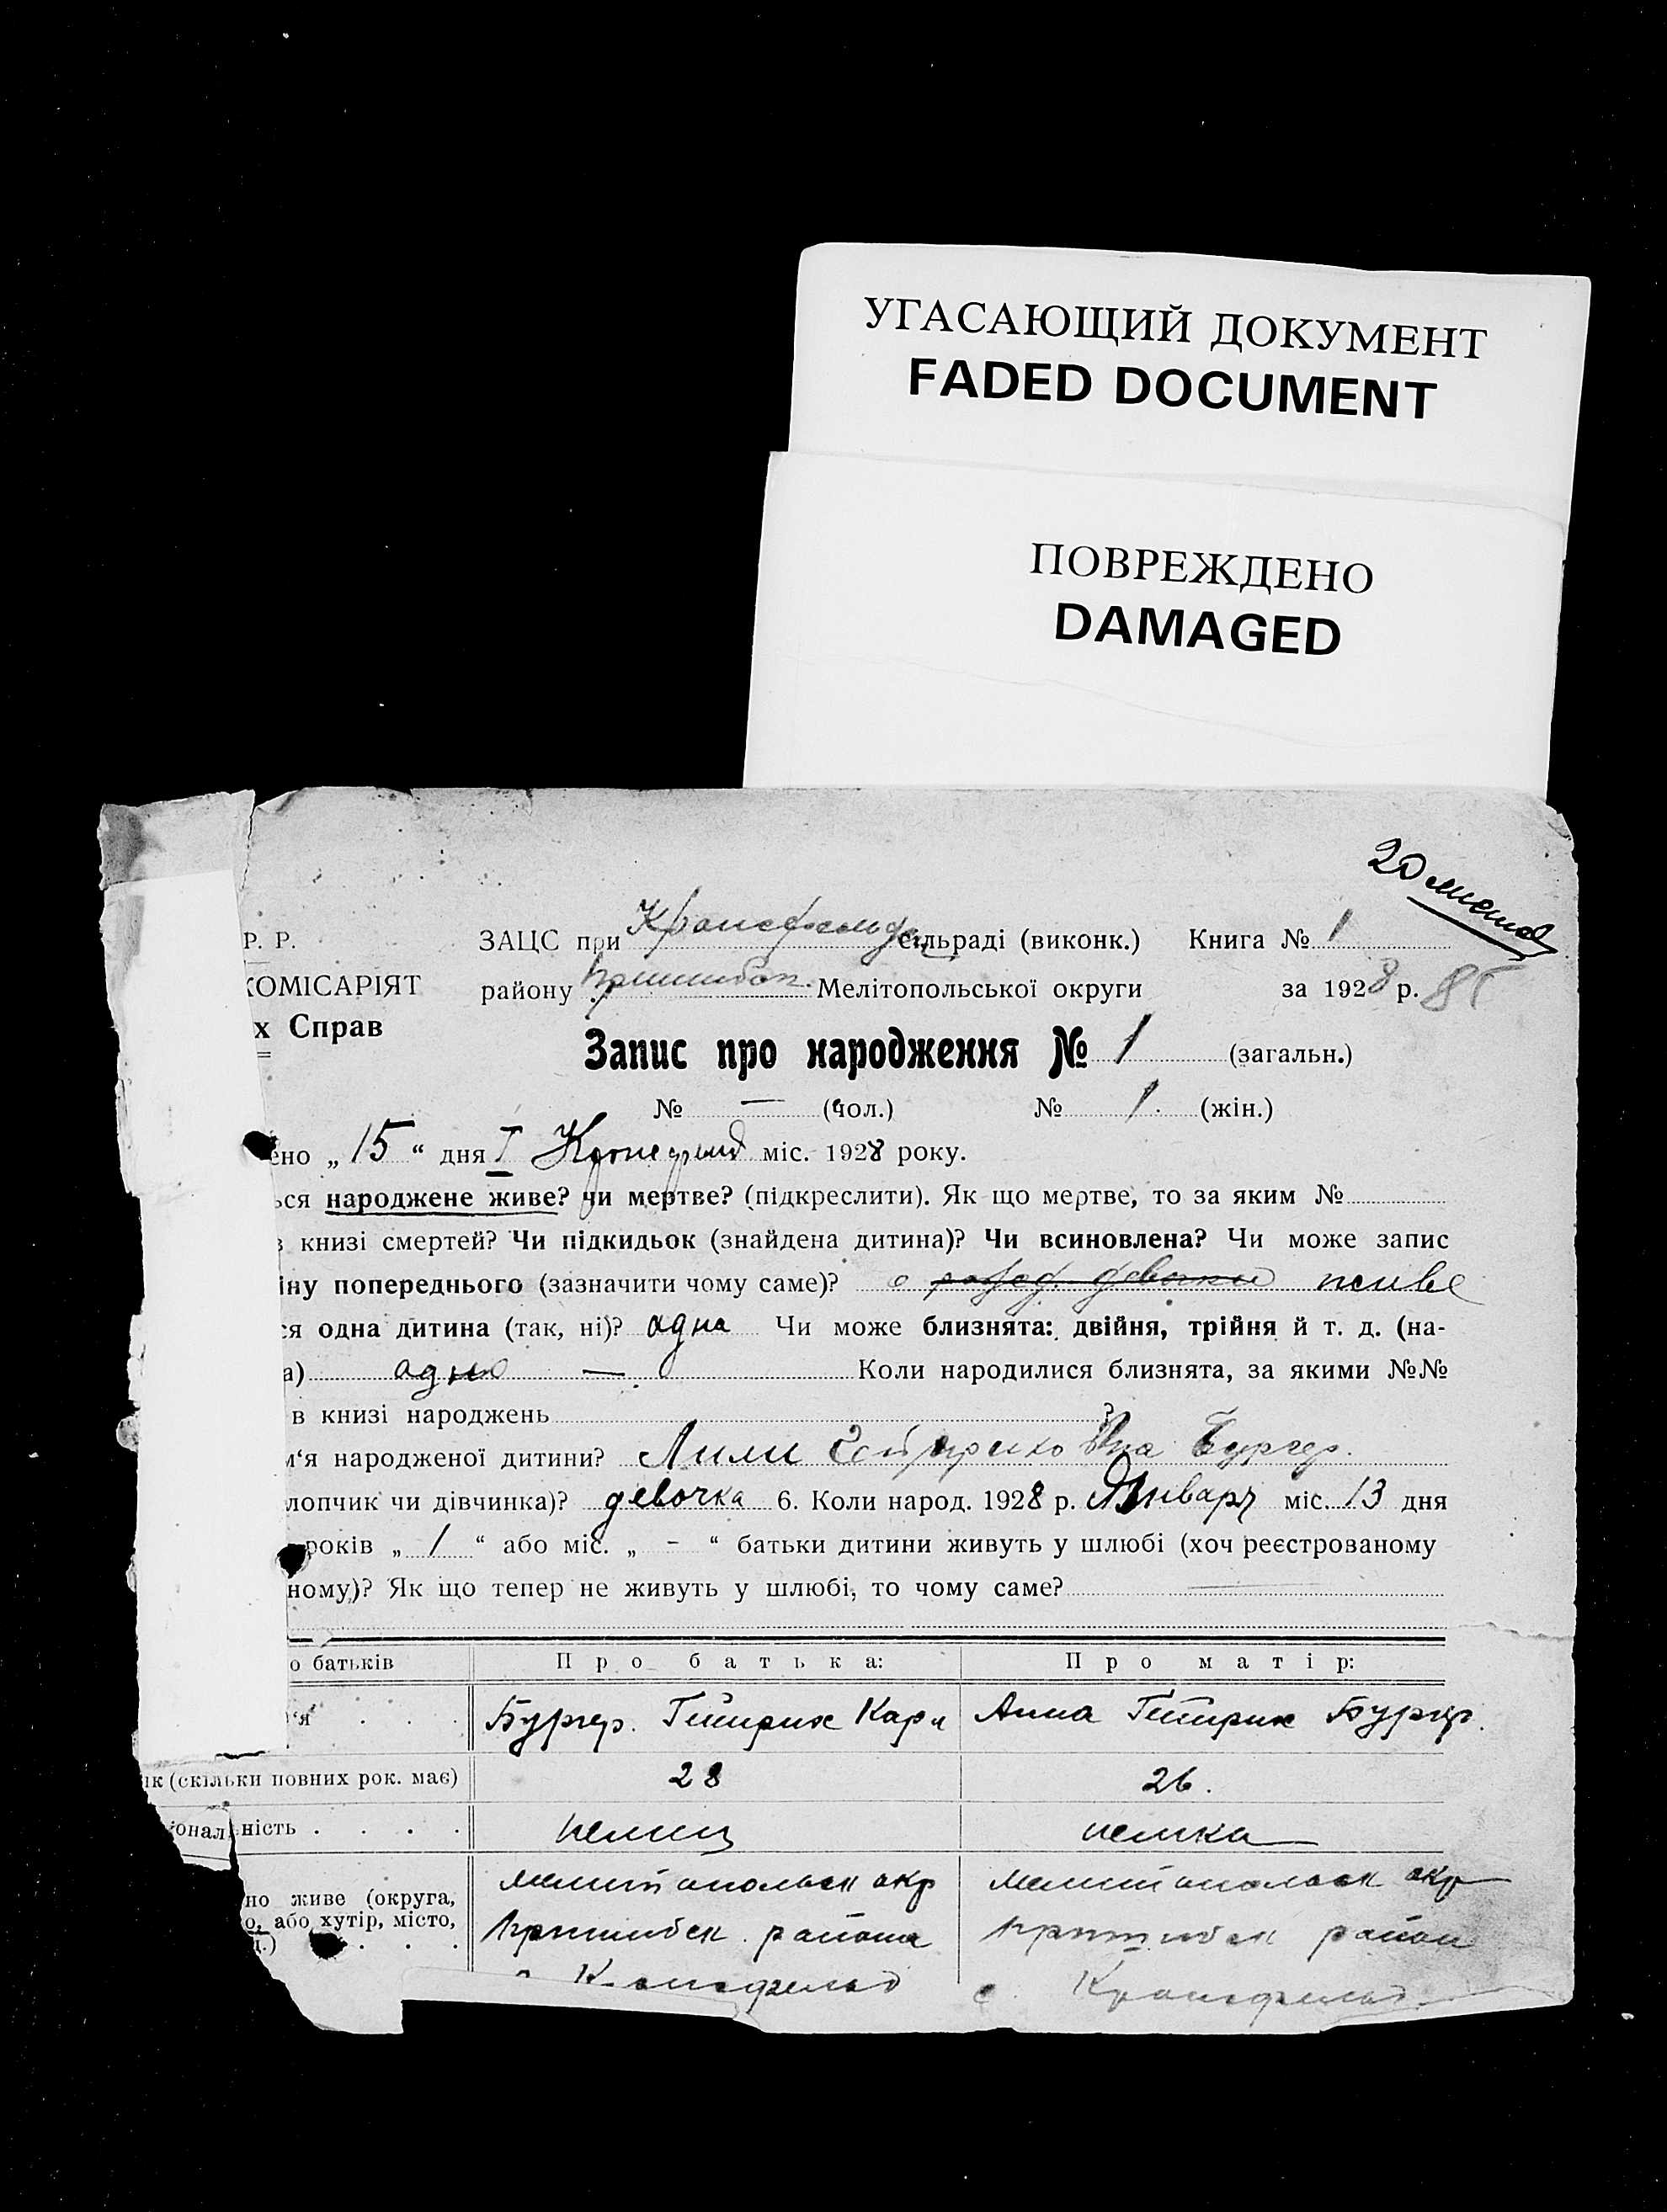 УГАСАЮЩИЙ ДОКУМЕНТ
FADED DOCUMENT
ПОВРЕЖДЕНО
DAMAGED
20 листов
Р. Р. ЗАЦС при Кронсфельд сільраді (виконк.) Книга № 1
КОМІСАРІЯТ району Пришибск. Мелітопольської округи за 1928 р. 85
х Справ
Запис про народження № 1 (загальн.)
№ — (чол.) № 1. (жін.)
ено „ 15 “ дня I міс. 1928 року.
ься народжене живе? чи мертве? (підкреслити). Як що мертве, то за яким №
в книзі смертей? Чи підкидьок (знайдена дитина)? Чи всиновлена? Чи може запис
іну попереднього (зазначити чому саме)? о девочки живе
ся одна дитина (так, ні)? одна Чи може близнята: двійня, трійня й т. д. (на-
а) одно — Коли народилися близнята, за якими №№
в книзі народжень ?
м‘я народженої дитини? Лили Бургер.
лопчик чи дівчинка)? девочка 6. Коли народ. 1928 р. Январь міс. 13 дня
років „ 1 “ або міс. „ - “ батьки дитини живуть у шлюбі (хоч реєстрованому
ному)? Як що тепер не живуть у шлюбі, то чому саме?
о батьків Про батька: Про матір:
‘я . . . . Бургер. Гейнрих Карл Анна Гейнрих Бургер.
ік (скільки повних рок. має) 28 26.
іональність . . . . немец немка
но живе (округа, Мелитопольск окр Мелитопольск окр
о, або хутір, місто, Пришибск. района Пришибск район
ц.) . . . Кронсфельд с. Кронсфельд